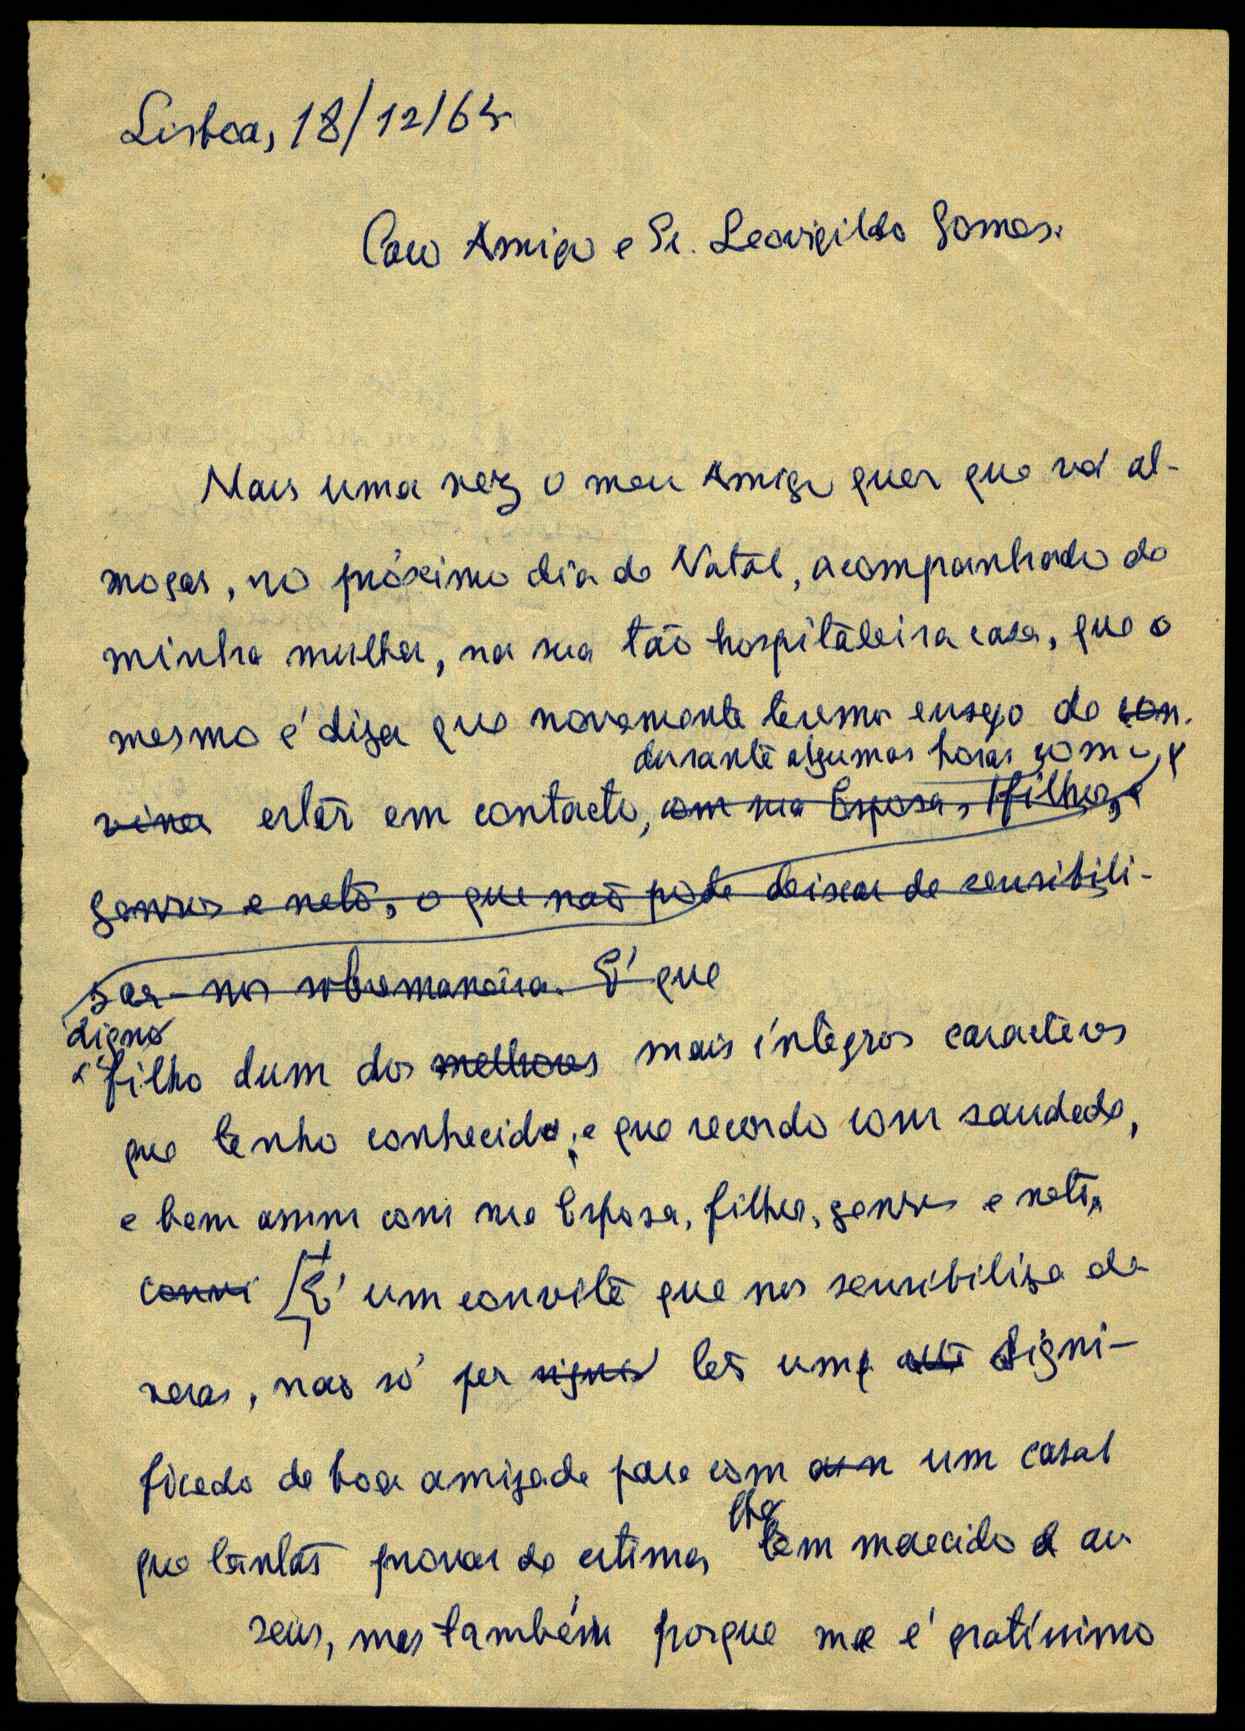 Lisboa, 18/12/64
Caro Amigo e Sr. Leovigildo Gomes:
Mais uma vez o meu Amigo quer que vá al-
moçar, no próximo dia de Natal, acompanhado de
minha mulher, na sua tão hospitaleira casa, que o
mesmo é dizer que novamente teremos ensejo de con-
durante algumas horas com o
viver estar em contacto, com sua Esposa, filhos, e
genros e neto, o que não pode deixar de sensibili-
zar-nos sobremaneira. É que
digno
filho dum dos melhores mais íntegros caracteres
que tenho conhecido, e que recordo com saudade,
e bem assim com sua Esposa, filhos, genros e neto,
convi É um convite que nos sensibiliza de
veras, não só por signi ter uma alto signi-
ficado de boa amizade para com um um casal
que tantas provas de estima lhe tem merecido e aos
seus, mas também porque me é gratíssimo